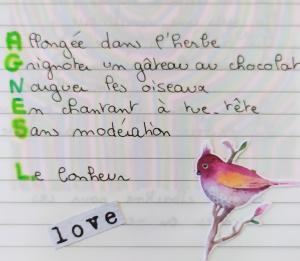 Allongée dans l'herbe
Grignoter un gâteau au chocolat
Narguer les oiseaux
En chantant à tue-tête
Sans modération
Le bonheur
love